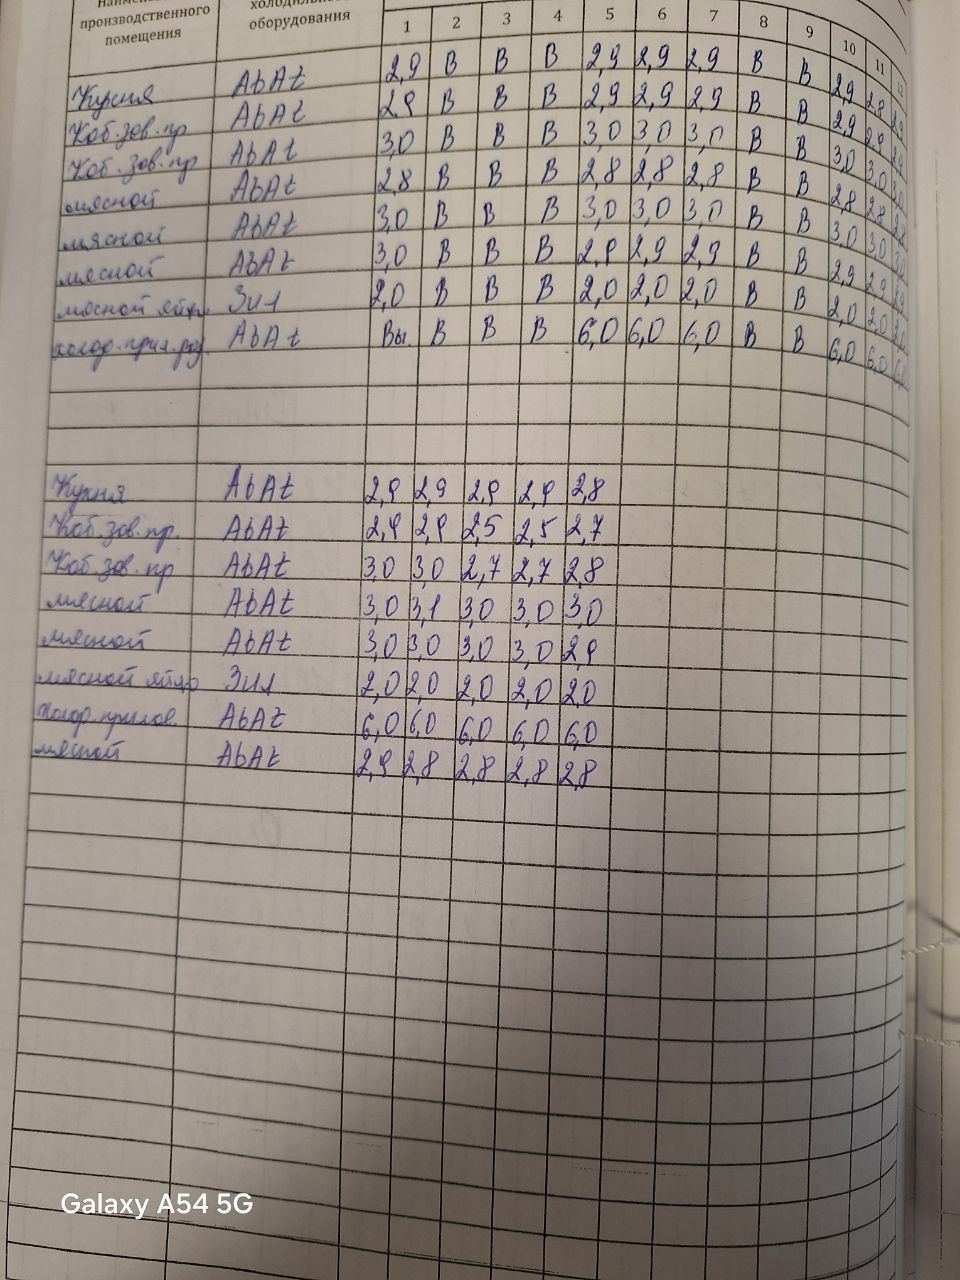 производственного
помещения
оборудования
1 2 3 4 5 6 7 8 9 10 11 12
Кухня АбАt 2,9 В В В 2,9 2,9 2,9 В В 2,9 2,8 2,9
Каб.зав.пр АбАt 2,9 В В В 2,9 2,9 2,9 В В 2,9 2,9 2,9
Каб.зав.пр АбАt 3,0 В В В 3,0 3,0 3,0 В В 3,0 3,0 3,0
мясной АбАt 2,8 В В В 2,8 2,8 2,8 В В 2,8 2,8
мясной АбАt 3,0 В В В 3,0 3,0 3,0 В В 3,0 3,0 3,0
мясной АбАt 3,0 В В В 2,9 2,9 2,9 В В 2,9 2,9 2,9
мясной Зил 2,0 В В В 2,0 2,0 2,0 В В 2,0 2,0 2,0
АбАt Вы В В В 6,0 6,0 6,0 В В 6,0 6,0 6,0
Кухня АбАt 2,9 2,9 2,9 2,9 2,8
Каб.зав.пр. АбАt 2,9 2,9 2,5 2,5 2,7
Каб.зав.пр АбАt 3,0 3,0 2,7 2,7 2,8
мясной АбАt 3,0 3,1 3,0 3,0 3,0
мясной АбАt 3,0 3,0 3,0 3,0 2,9
мясной яйцо Зил 2,0 2,0 2,0 2,0 2,0
АбАt 6,0 6,0 6,0 6,0 6,0
мясной АбАt 2,9 2,8 2,8 2,8 2,8
Galaxy A54 5G